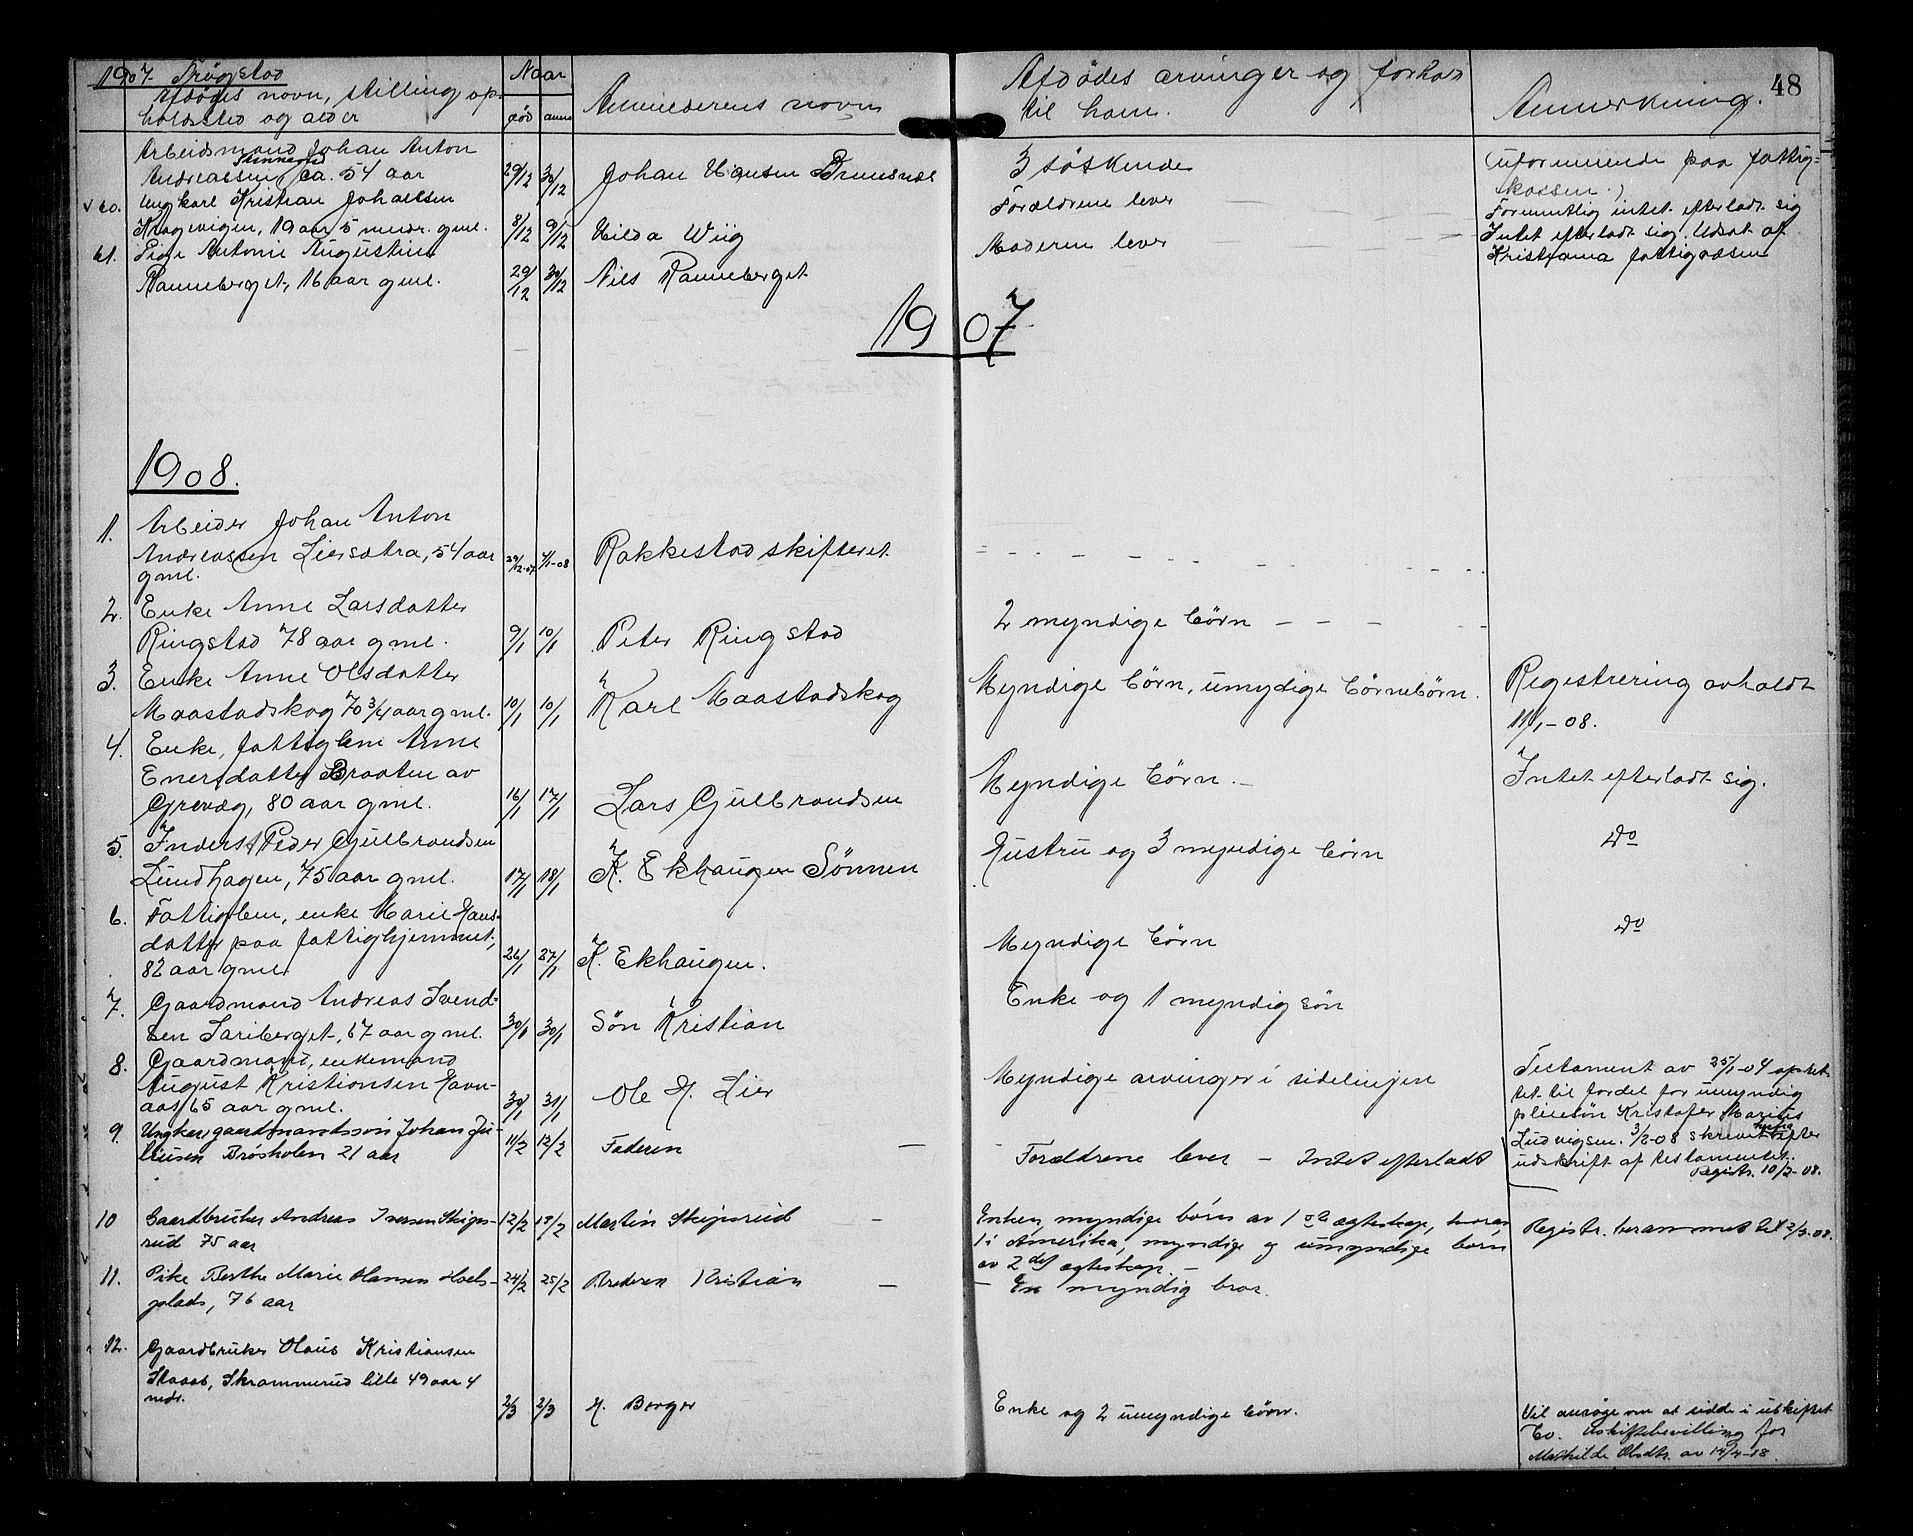 1907. Trøgstad
Afdødes navn, stilling op-
holdssted og alder
Naar
død anm
Anmelderens navn
Afdødes arvinger og forhold
til ham.
Anmerkning.
48
Arbeidsmand Johan Anton
Andreassen ca. 54 aar
29/12 30/12
Johan Hansen
3 søskende
(uformuende paa fattig-
kassen.)
v 60. Ungkarl Kristian Johansen
Kragevigen, 19 aar 5 mndr. gml.
8/12 9/12
Hilda Wiig
Forældrene lever
Formentlig intet efterladt sig
61. Pige Antonie Augustine
Ranneberget, 16 aar gml.
29/12 30/12
Nils Ranneberget
Moderen lever
Intet efterladt sig. Udsat af
Kristiania fattigvæsen
1907
1908.
1. Arbeider Johan Anton
Andreassen Liersætra, 54 aar
gml.
29/12-07 7/1-08
Rakkestad skifteret
2. Enke Anne Larsdatter
Ringstad 78 aar gml.
9/1 10/1
Peter Ringstad
2 myndige børn
3. Enke Anne Olsdatter
Maastadskog 70 3/4 aar gml.
10/1 10/1
Karl Maastadskog
Myndige børn, umydige børnebørn.
Registrering avholdt
11/1-08.
4. Enke, fattiglem Anne
Enersdatter Braaten av
Grevæg, 80 aar gml.
16/1 17/1
Lars Gulbrandsen
Myndige børn.
Intet efterladt sig.
5. Inderst Peder Gulbrandsen
Lundhagen, 75 aar gml.
17/1 18/1
K. Ekhaugen Sønnen
Hustru og 3 myndige børn
Do
6. Fattiglem, enke Marie Hans-
datter paa fattighjemmet,
82 aar gml.
26/1 27/1
K. Ekhaugen.
Myndige børn
Do
7. Gaardmand Andreas Svend-
sen Sariberget, 67 aar gml.
30/1 30/1
Søn Kristian
Enke og 1 myndig søn
8. Gaardmand, enkemand
August Kristiansen Havn-
aas 65 aar gml.
30/1 31/1
Ole H. Lier
Myndige arvinger i sidelinjen
Testament av 25/1-04 opret-
tet til fordel for umyndig
pleiesøn Kristofer Marius
Ludvigsen. 3/2-08 skrevet efter
udskrift af testamentet.
Registr. 10/2-08.
9. Ungkar, gaardmandssøn Johan Ju-
liusen Brøsholen 21 aar
11/2 12/2
Faderen
Forældrene lever – Intet efterladt
10 Gaardbruker Andreas Iversen Skips-
rud 75 aar
12/2 13/2
Martin Skipsrud
Enken, myndige børn av 1ste egteskap, hvorav
1 i Amerika, myndige og umyndige børn
av 2det egteskap.
Registr. berammet til 2/3-08.
11. Pike Berthe Marie Hansen Hoels-
plads, 76 aar
24/2 25/2
Broderen Kristian
En myndig bror.
12. Gaardbruker Olaus Kristiansen
Skaaeb, Skrammerud lille 49 aar 4
mdr.
2/3 2/3
H. Berger
Enke og 2 umyndige børn.
Vil ansøge om at sidde i uskiftet
bo. Uskiftebevilling for
Mathilde Olsdtr. av 14/4-08.